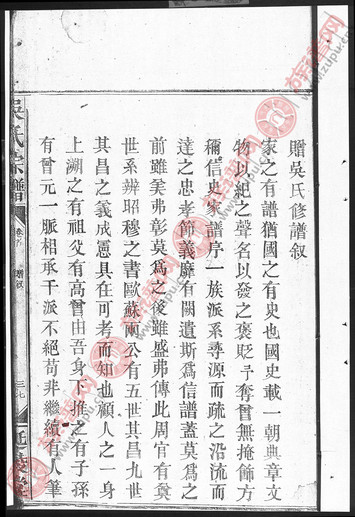 贈吳氏修譜叙
家之有譜猶國之有史也國史載一朝典章文
物以紀之聲名以發之褒貶予奪嘗無掩飾方
稱信史家譜序一族派系尋源而疏之沿流而
達之忠孝節義靡有闕遺斯爲信譜蓋莫爲之
前雖美弗彰莫爲之後雖盛弗傳此周官有奠
世系辨昭穆之書歐蘇兩公有五世其昌九世
其昌之義成憲具在可考而知也顧人之一身
上溯之有祖父有高曾由吾身下推之有子孫
有曾元一脈相承千派不絕苟非繼續有人筆
吳氏宗譜
贈叙
三七
古籍譜网
www.zupu.cn